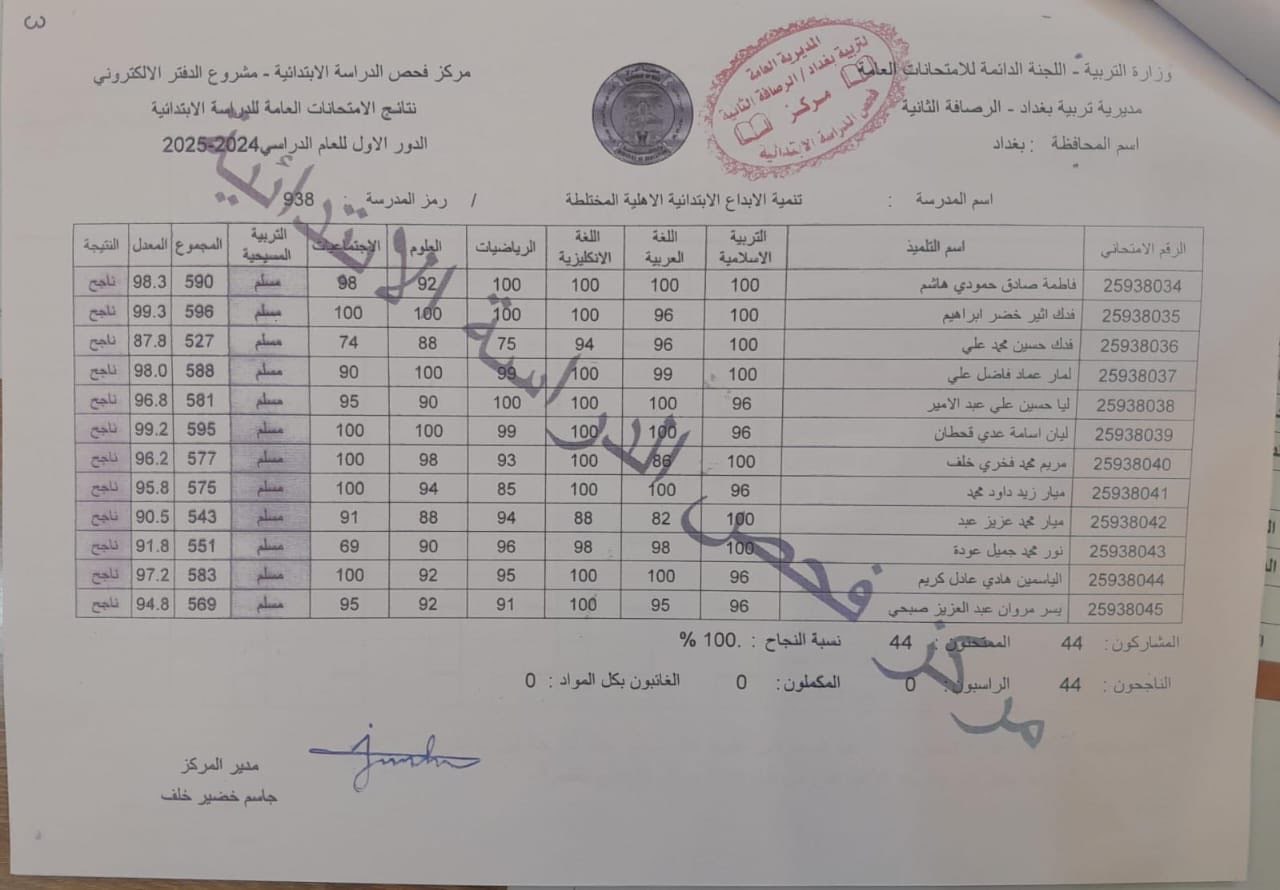 3
وزارة التربية - اللجنة الدائمة للامتحانات العامة
مركز فحص الدراسة الابتدائية - مشروع الدفتر الالكتروني
مديرية تربية بغداد - الرصافة الثانية
نتائج الامتحانات العامة للدراسة الابتدائية
اسم المحافظة : بغداد
الدور الاول للعام الدراسي 2024-2025
المديرية العامة
لتربية بغداد / الرصافة الثانية
مركز
فحص الدراسة الابتدائية
اسم المدرسة : تنمية الابداع الابتدائية الاهلية المختلطة / رمز المدرسة : 938
الرقم الامتحاني اسم التلميذ التربية الاسلامية اللغة العربية اللغة الانكليزية الرياضيات العلوم الاجتماعيات التربية المسيحية المجموع المعدل النتيجة
25938034 فاطمة صادق حمودي هاشم 100 100 100 100 92 98 مسلم 590 98.3 ناجح
25938035 فدك اثير خضر ابراهيم 100 96 100 100 100 100 مسلم 596 99.3 ناجح
25938036 فدك حسين محمد علي 100 96 94 75 88 74 مسلم 527 87.8 ناجح
25938037 لمار عماد فاضل علي 100 99 100 99 100 90 مسلم 588 98.0 ناجح
25938038 ليا حسين علي عبد الامير 96 100 100 100 90 95 مسلم 581 96.8 ناجح
25938039 ليان اسامة عدي قحطان 96 100 100 99 100 100 مسلم 595 99.2 ناجح
25938040 مريم محمد فخري خلف 100 86 100 93 98 100 مسلم 577 96.2 ناجح
25938041 ميار زيد داود محمد 96 100 100 85 94 100 مسلم 575 95.8 ناجح
25938042 ميار محمد عزيز عبد 100 82 88 94 88 91 مسلم 543 90.5 ناجح
25938043 نور محمد جميل عودة 100 98 98 96 90 69 مسلم 551 91.8 ناجح
25938044 الياسمين هادي عادل كريم 96 100 100 95 92 100 مسلم 583 97.2 ناجح
25938045 يسر مروان عبد العزيز صبحي 96 95 100 91 92 95 مسلم 569 94.8 ناجح
مركز فحص الدراسة الابتدائية
المشاركون : 44 الممتحنون : 44 نسبة النجاح : .100 %
الناجحون : 44 الراسبون : 0 المكملون : 0 الغائبون بكل المواد : 0
مدير المركز
جاسم خضير خلف